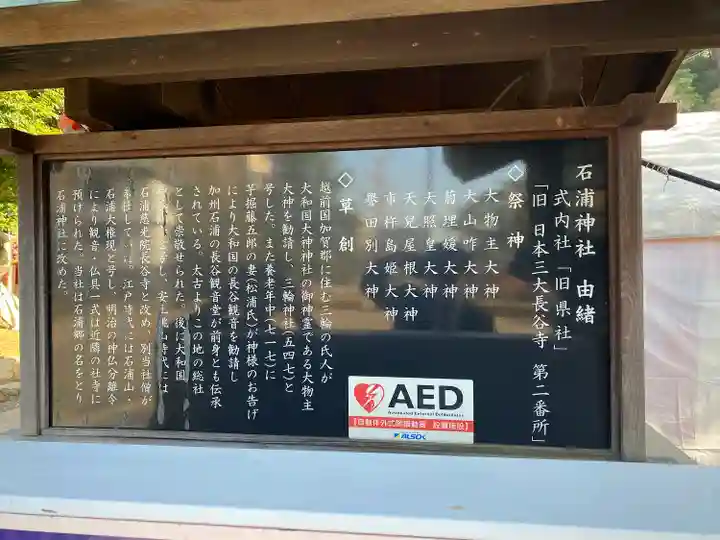 石浦神社 由緒
式内社「旧県社」
「旧 日本三大長谷寺 第二番所」
◇祭神
大物主大神
大山咋大神
菊理媛大神
天照皇大神
天児屋根大神
市杵島姫大神
誉田別大神
◇草創
越前国加賀郡に住む三輪の氏人が
大和国大神神社の御神霊である大物主
大神を勧請し、三輪神社(五四七)と
号した。また養老年中(七一七)に
芋掘藤五郎の妻(松浦氏)が神様のお告げ
により大和国の長谷観音を勧請し
加州石浦の長谷観音堂が前身とも伝承
されている。太古よりこの地の総社
として崇敬せられた。後に大和国
号し、安土桃山時代には
石浦慈光院長谷寺と改め、別当社僧が
奉仕していた。江戸時代には石浦山・
石浦大権現と号し、明治の神仏分離令
により観音・仏具一式は近隣の社寺に
預けられた。当社は石浦郷の名をとり
石浦神社に改めた。
AED
Automated External Defibrillator
【自動体外式除細動器 設置施設】
ALSOK